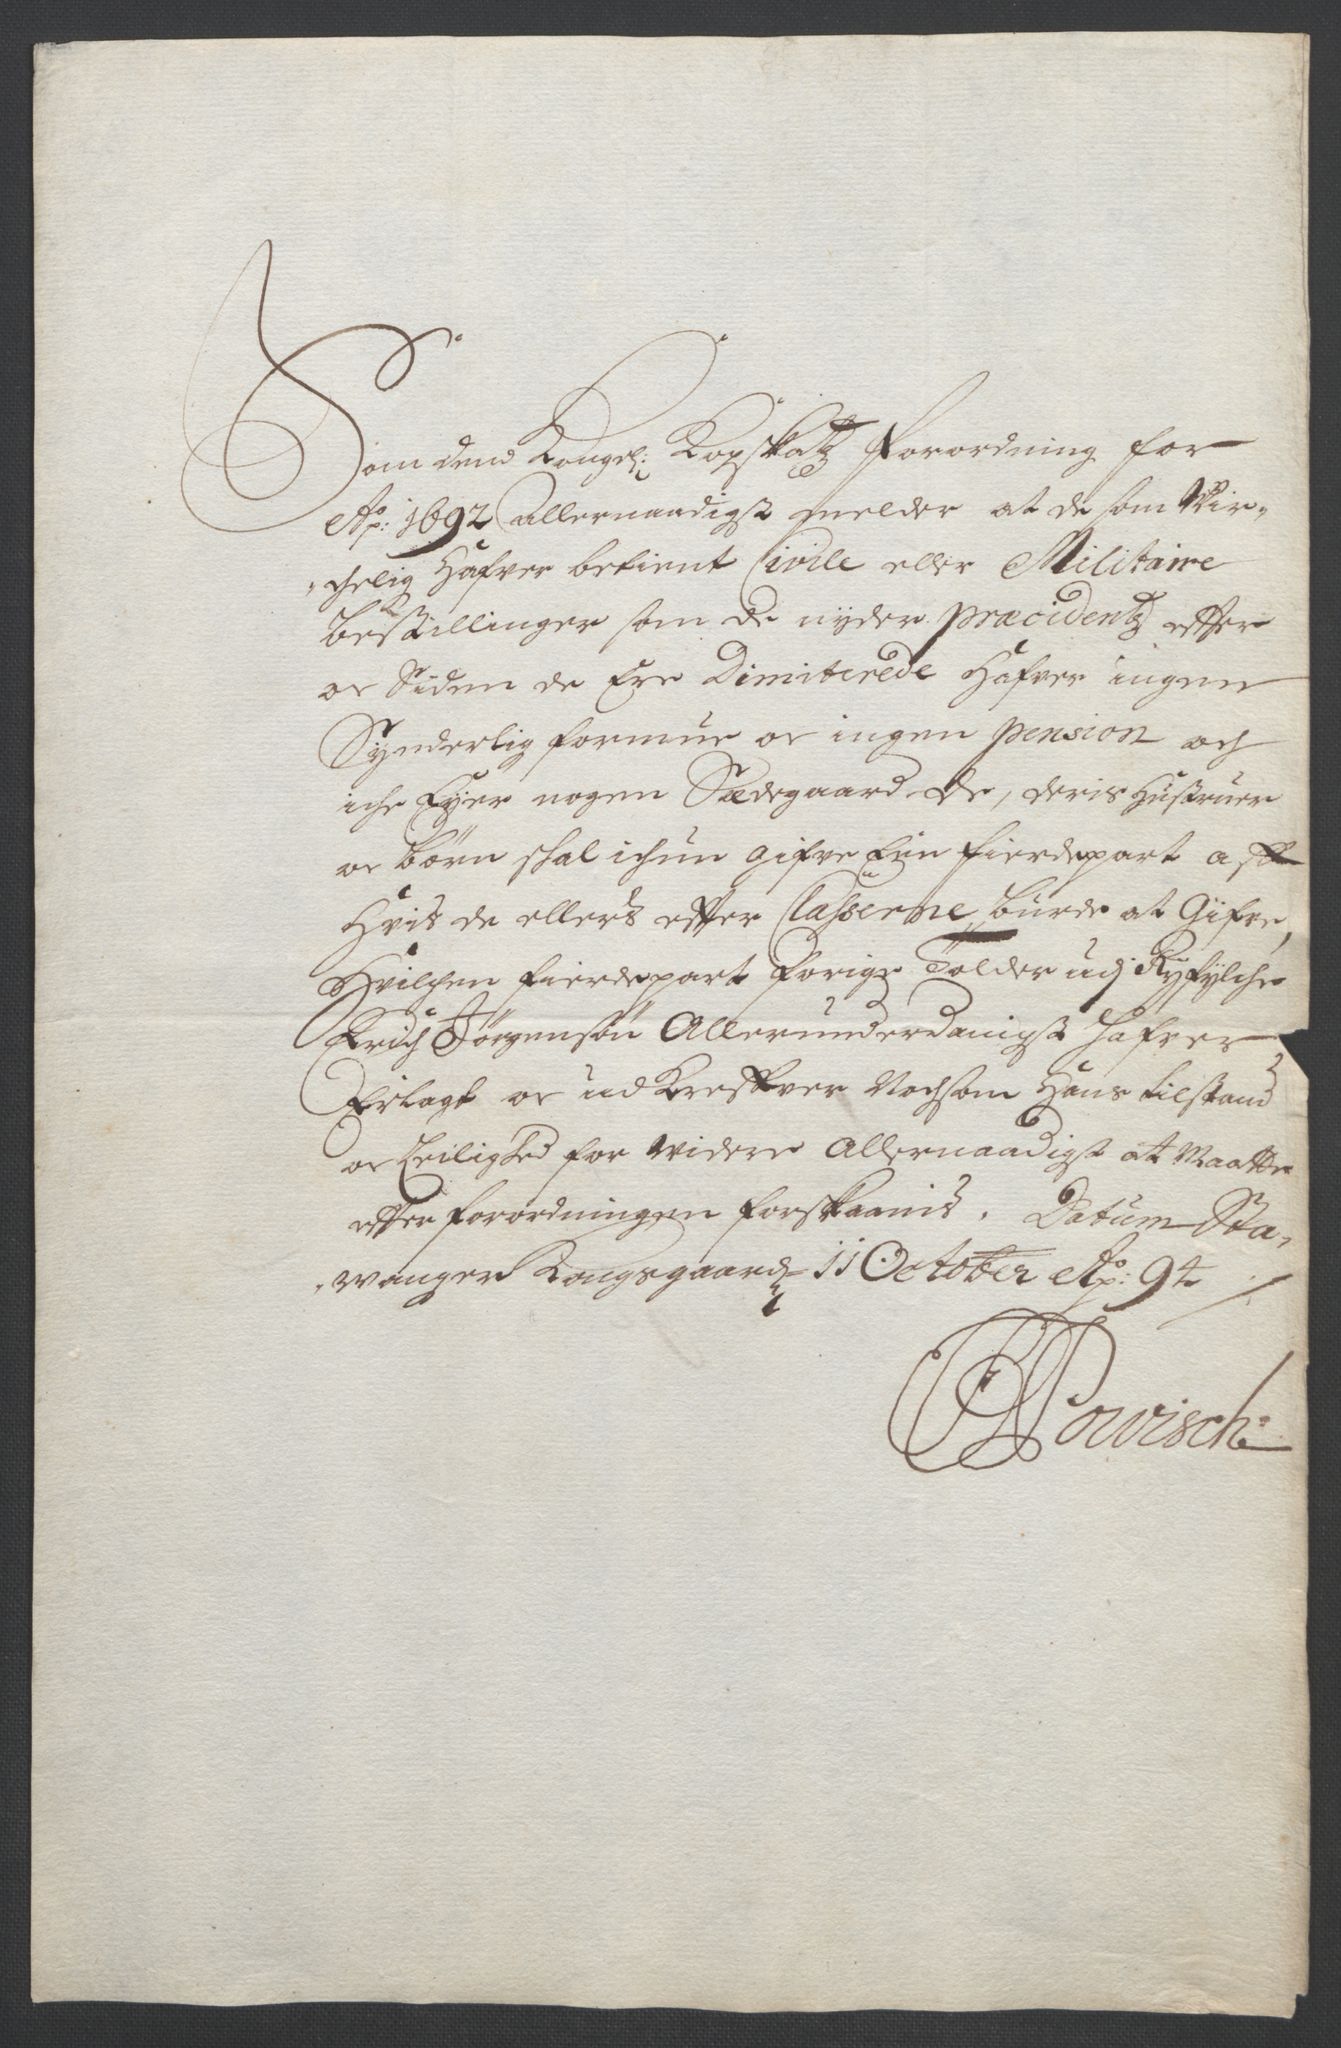 Som dend Kongel: Kopskatz forordning for
Ao: 1692 allernaadigst melder at de som Vir-
-chelig Hafver betient Civile eller Militaire
Bestillinger som de nyder præcidentz effter
oc Siden de Ere Dimiterede Hafver ingen
Synderlig formue oc ingen pension och
iche Eyer nogen Sædegaard. De, deris Hustruer
oc börn skal ichun gifve Een fierdepart aff
Hvis de ellers effter Classerne burde at Gifve,
Hvilchen fierdepart forige Tolder udj Ryfylche
Erich Jörgensön Allerunderdanigst hafver
Erlagt oc ud Kreffver Nochsom Hans tilstand
oc Leilighed for videre Allernaadigst at Maatte
effter forordningen forskaanis. Datum Sta-
-wanger Kongsgaard 11 October Ao: 94
Powisch